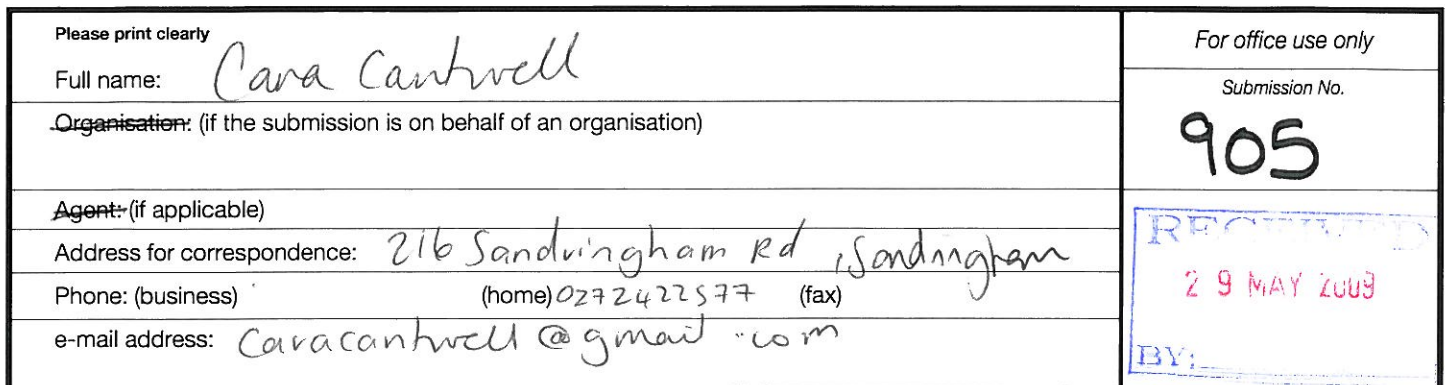 Please print clearly
Full name: Cara Cantwell
Organisation: (if the submission is on behalf of an organisation)
Agent: (if applicable)
Address for correspondence: 216 Sandringham Rd, Sandringham
Phone: (business) (home) 0272422577 (fax)
e-mail address: caracantwell@gmail.com
For office use only
Submission No.
905
RECEIVED
29 MAY 2009
BY: